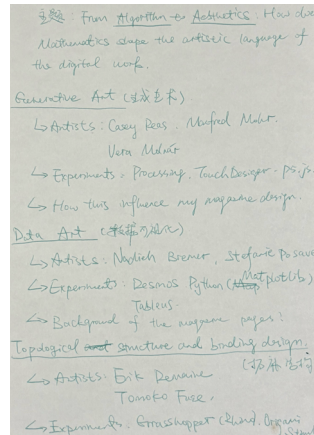 主题: From Algorithm to Aesthetics: How does
Mathematics shape the artistic language of
the digital work.
Generative Art (生成艺术)
↳ Artists: Casey Reas. Manfred Mohr.
Vera Molnár
↳ Experiments. Processing. TouchDesigner. p5.js.
↳ How this influence my magazine design.
Data Art (数据可视化)
↳ Artists: Nadieh Bremer, Stefanie Posavec
↳ Experiments: Desmos Python (Matplotlib)
↳ Background of the magazine pages?
Topological structure and binding design.
(拓扑结构)
↳ Artists: Erik Demaine
Tomoko Fuse.
↳ Experiments: Grasshopper (Rhino). Origami